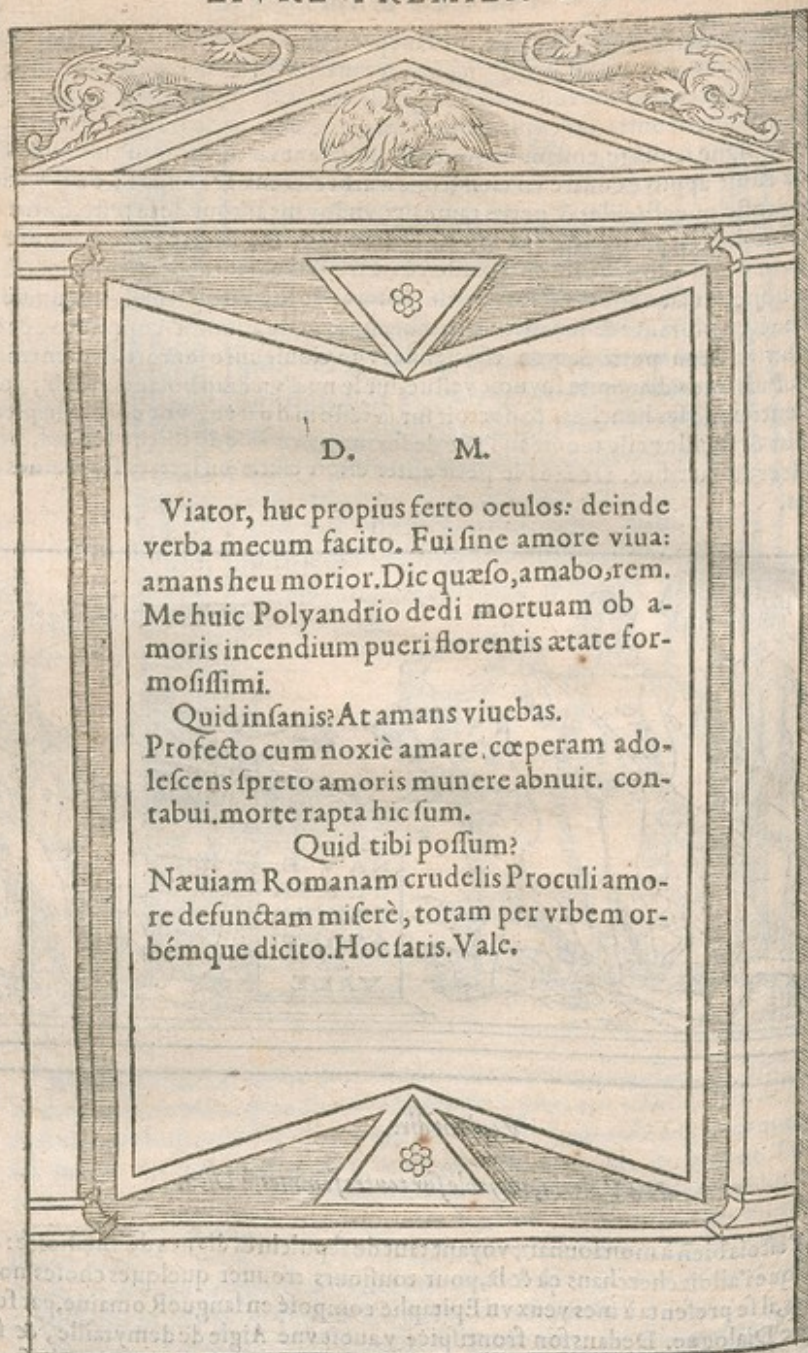 D. M.
Viator, huc propius ferto oculos: deinde
verba mecum facito. Fui ſine amore viua:
amans heu morior. Dic quæſo, amabo, rem.
Me huic Polyandrio dedi mortuam ob a-
moris incendium pueri florentis ætate for-
moſiſſimi.
Quid inſanis? At amans viuebas.
Profecto cum noxiè amare. cœperam ado-
leſcens ſpreto amoris munere abnuit. con-
tabui. morte rapta hic ſum.
Quid tibi poſſum?
Næuiam Romanam crudelis Proculi amo-
re defunctam miſerè, totam per vrbem or-
bémque dicito. Hoc ſatis. Vale.